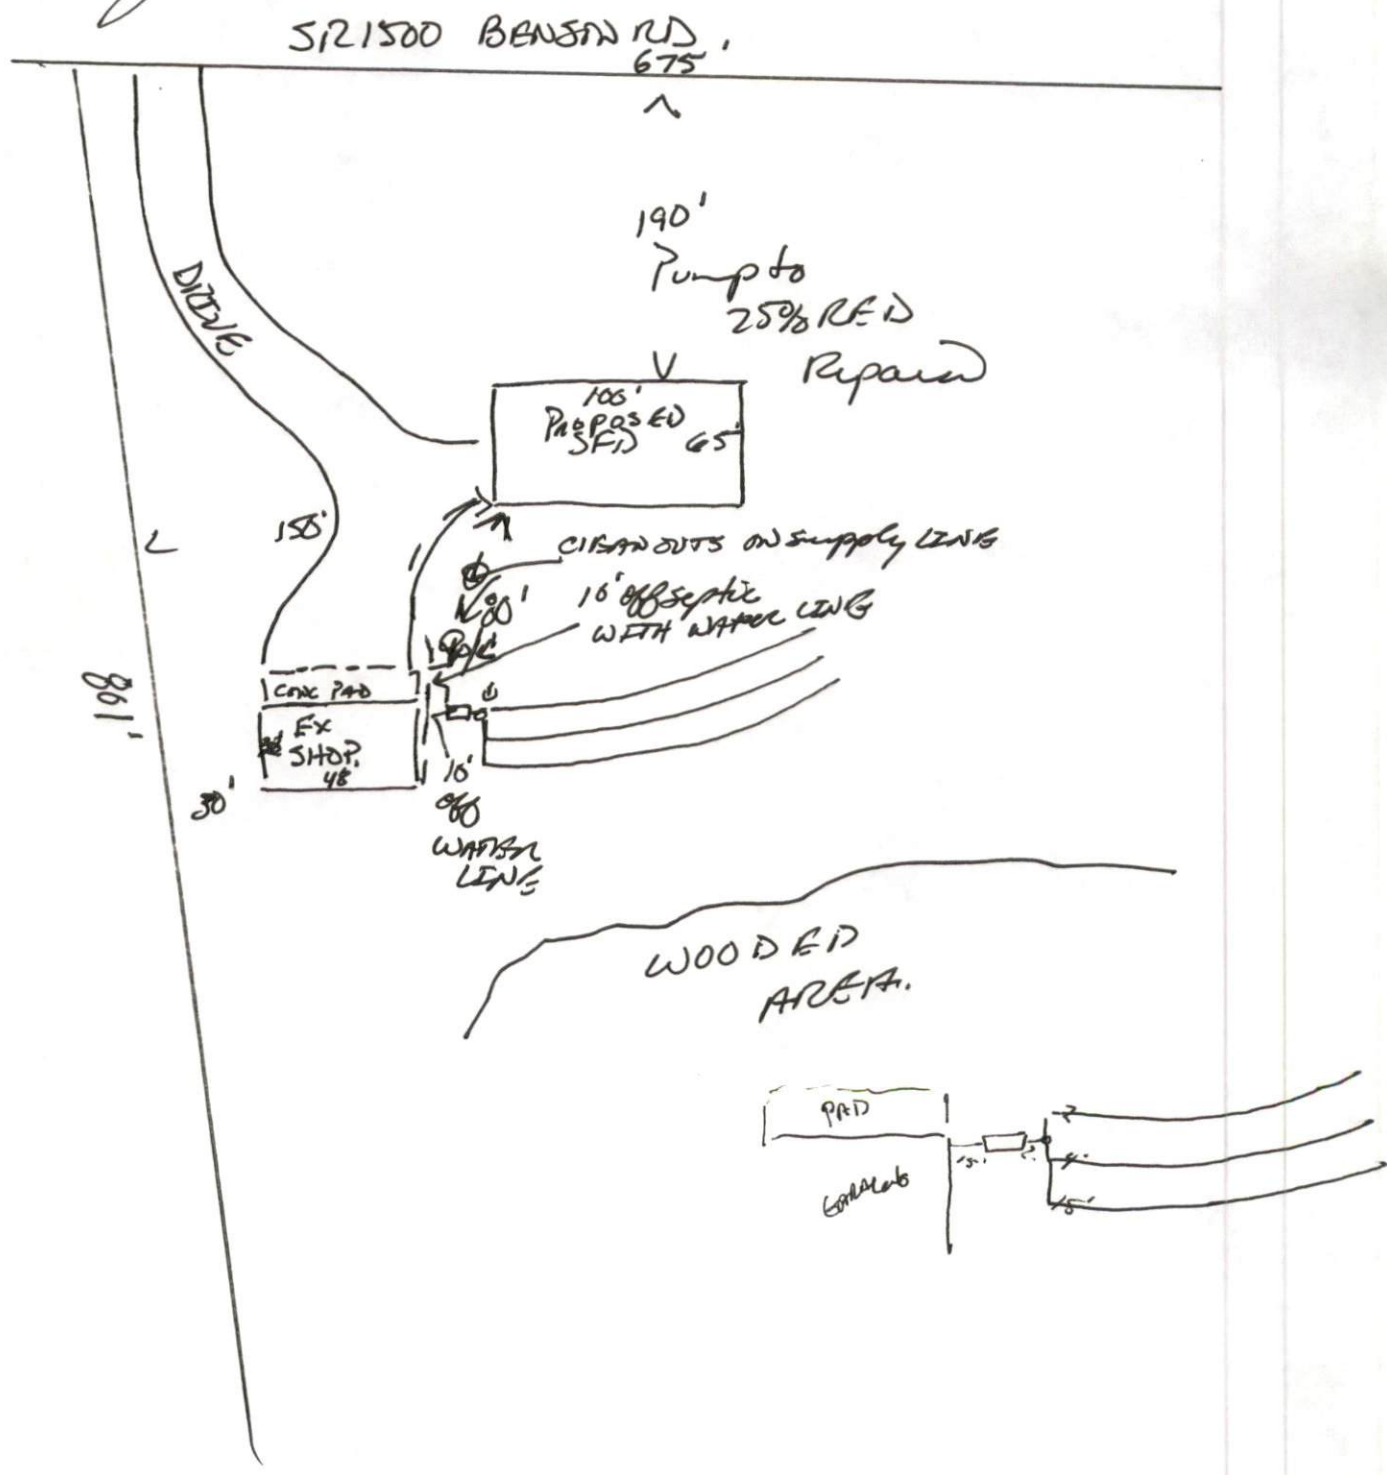 SR1500 BENSON RD.
675
190'
Pump to
25% RED
Repair
DRIVE
100'
PROPOSED
SFD 65'
150'
CLEANOUTS ON Supply LINE
80'
10' off septic
WITH WATER LINE
CONC PAD
EX
SHOP.
48
30'
10'
off
WATER
LINE
WOODED
AREA.
PAD